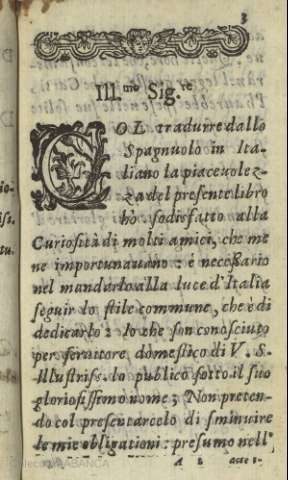 3
Ill.mo Sig.re
COL tradurre dallo
Spagnuolo in Ita-
liano la piaceuolez-
za del presente libro
hò sodisfatto alla
Curiosità di molti amici, che me
ne importunauano: è necessario
nel mandarlo alla luce d'Italia
seguir lo stile commune, che è di
dedicarlo: Io che son conosciuto
per seruitore domestico di V. S.
Illustriss. lo publico sotto il suo
gloriosissimo nome; Non preten-
do col presentarcelo di sminuire
le mie obligationi: presumo nell'
A 2 atte s-